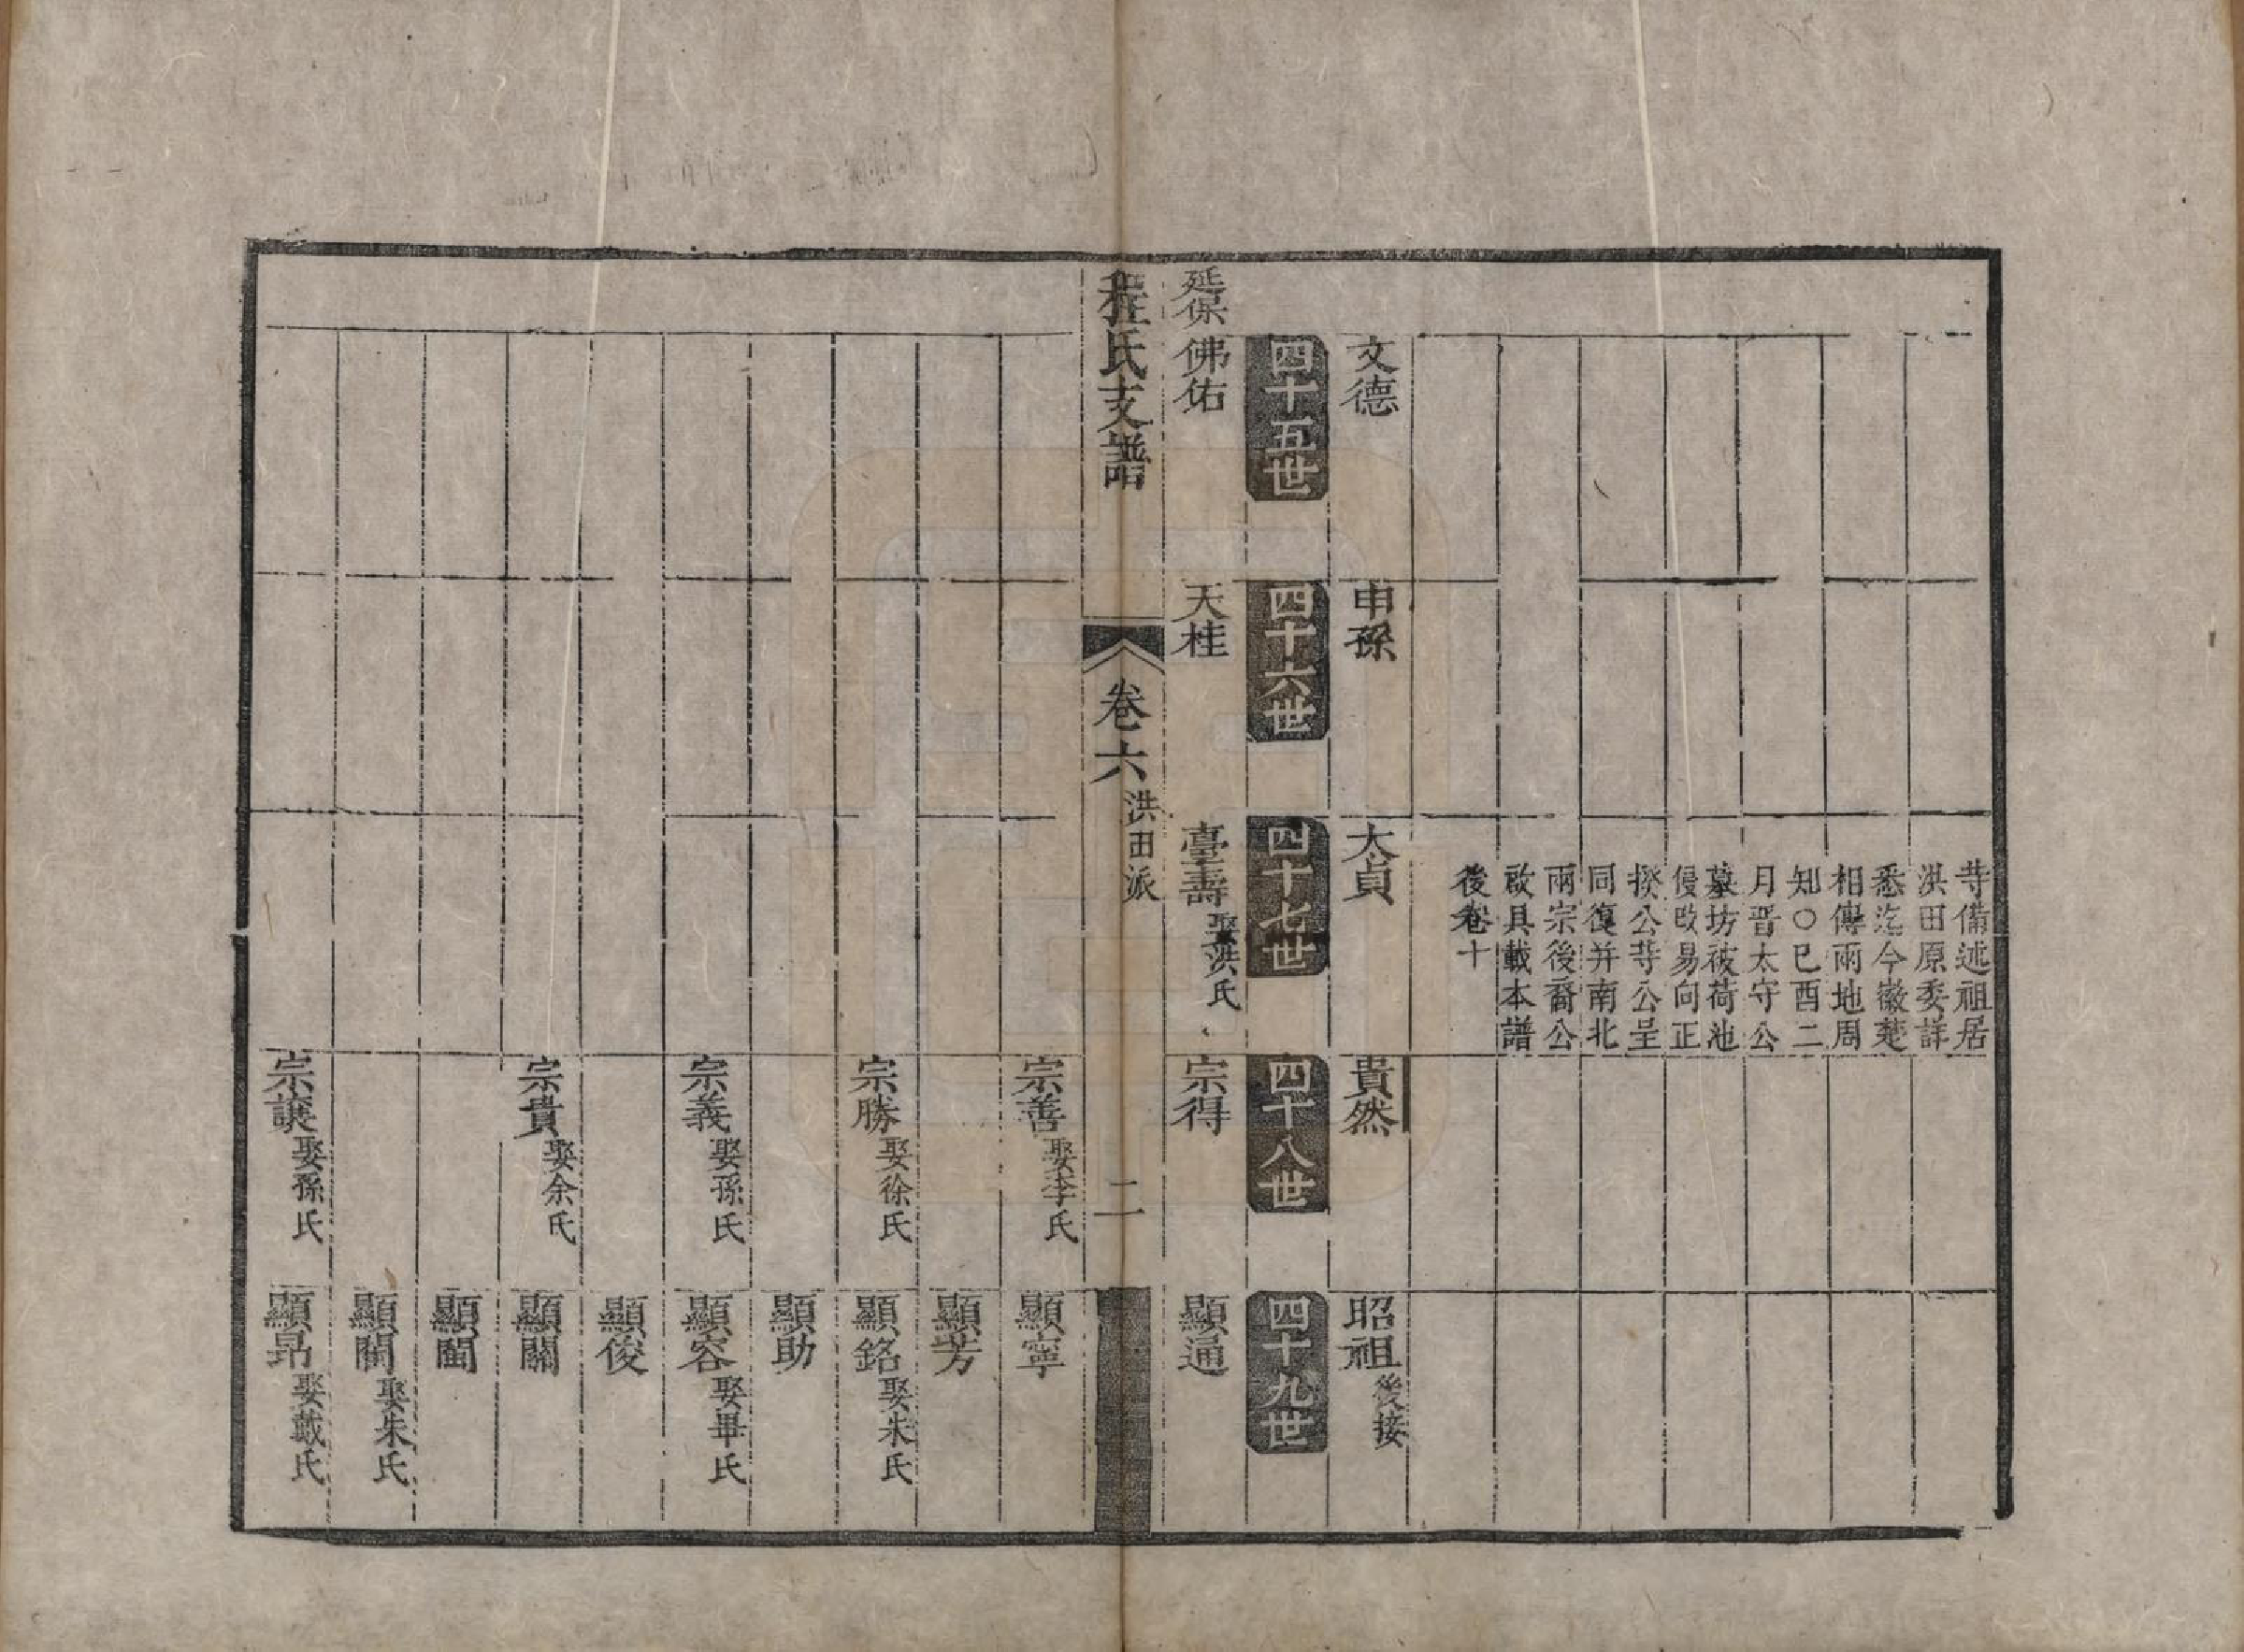 寺備述祖居
洪田原委詳
悉迄今徽楚
相傳兩地周
知○巳酉二
月晋太守公
墓坊被荷池
侵改易向正
揆公寺公呈
同復并南北
兩宗後裔公
啟具載本譜
後卷十
文德
申孫
大貞
貴然
昭祖後接
四十五世
四十六世
四十七世
四十八世
四十九世
延保
佛佑
天桂
臺壽娶洪氏
宗得
顯通
程氏支譜
卷六
洪田派
二
宗善娶李氏
顯寧
顯芳
宗勝娶徐氏
顯銘娶朱氏
顯助
宗義娶孫氏
顯容娶畢氏
顯俊
宗貴娶余氏
顯關
顯閩
顯開娶朱氏
宗譲娶孫氏
顯昂娶戴氏